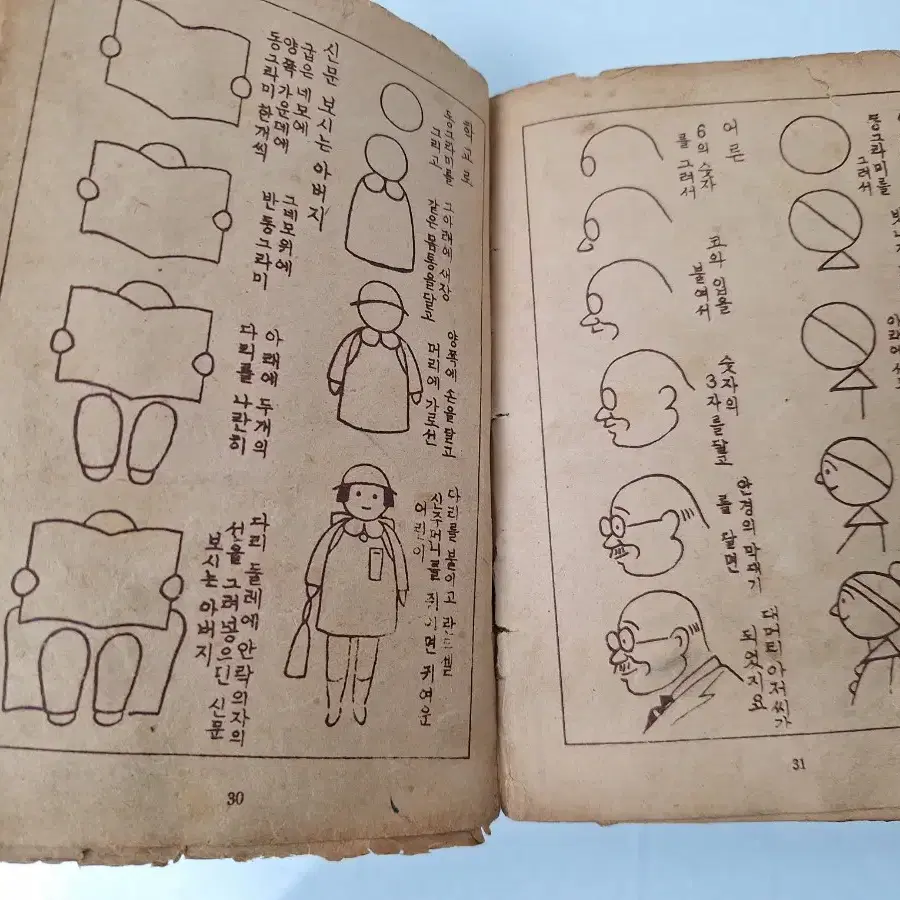 학교로
동그라미를
그리고
그아래에 새장
같은 몸통을달고
양쪽에 손을달고
머리에 가로선
다리를 붙이고 란드셀
신주머니를 쥐이면 귀여운
어린이
신문 보시는 아버지
굽은 네모에
양쪽 가운데에
동그라미한개씩
그네모위에
반 동그라미
아래에 두개의
다리를 나란히
다리 둘레에 안락의자의
선을 그려넣으면 신문
보시는 아버지
30
동그라미를
그려서
어른
6의 숫자
를 그려서
코와 입을
붙여서
숫자의
3자를달고
안경의 막대기
를 달면
대머리아저씨가
되었지요
31